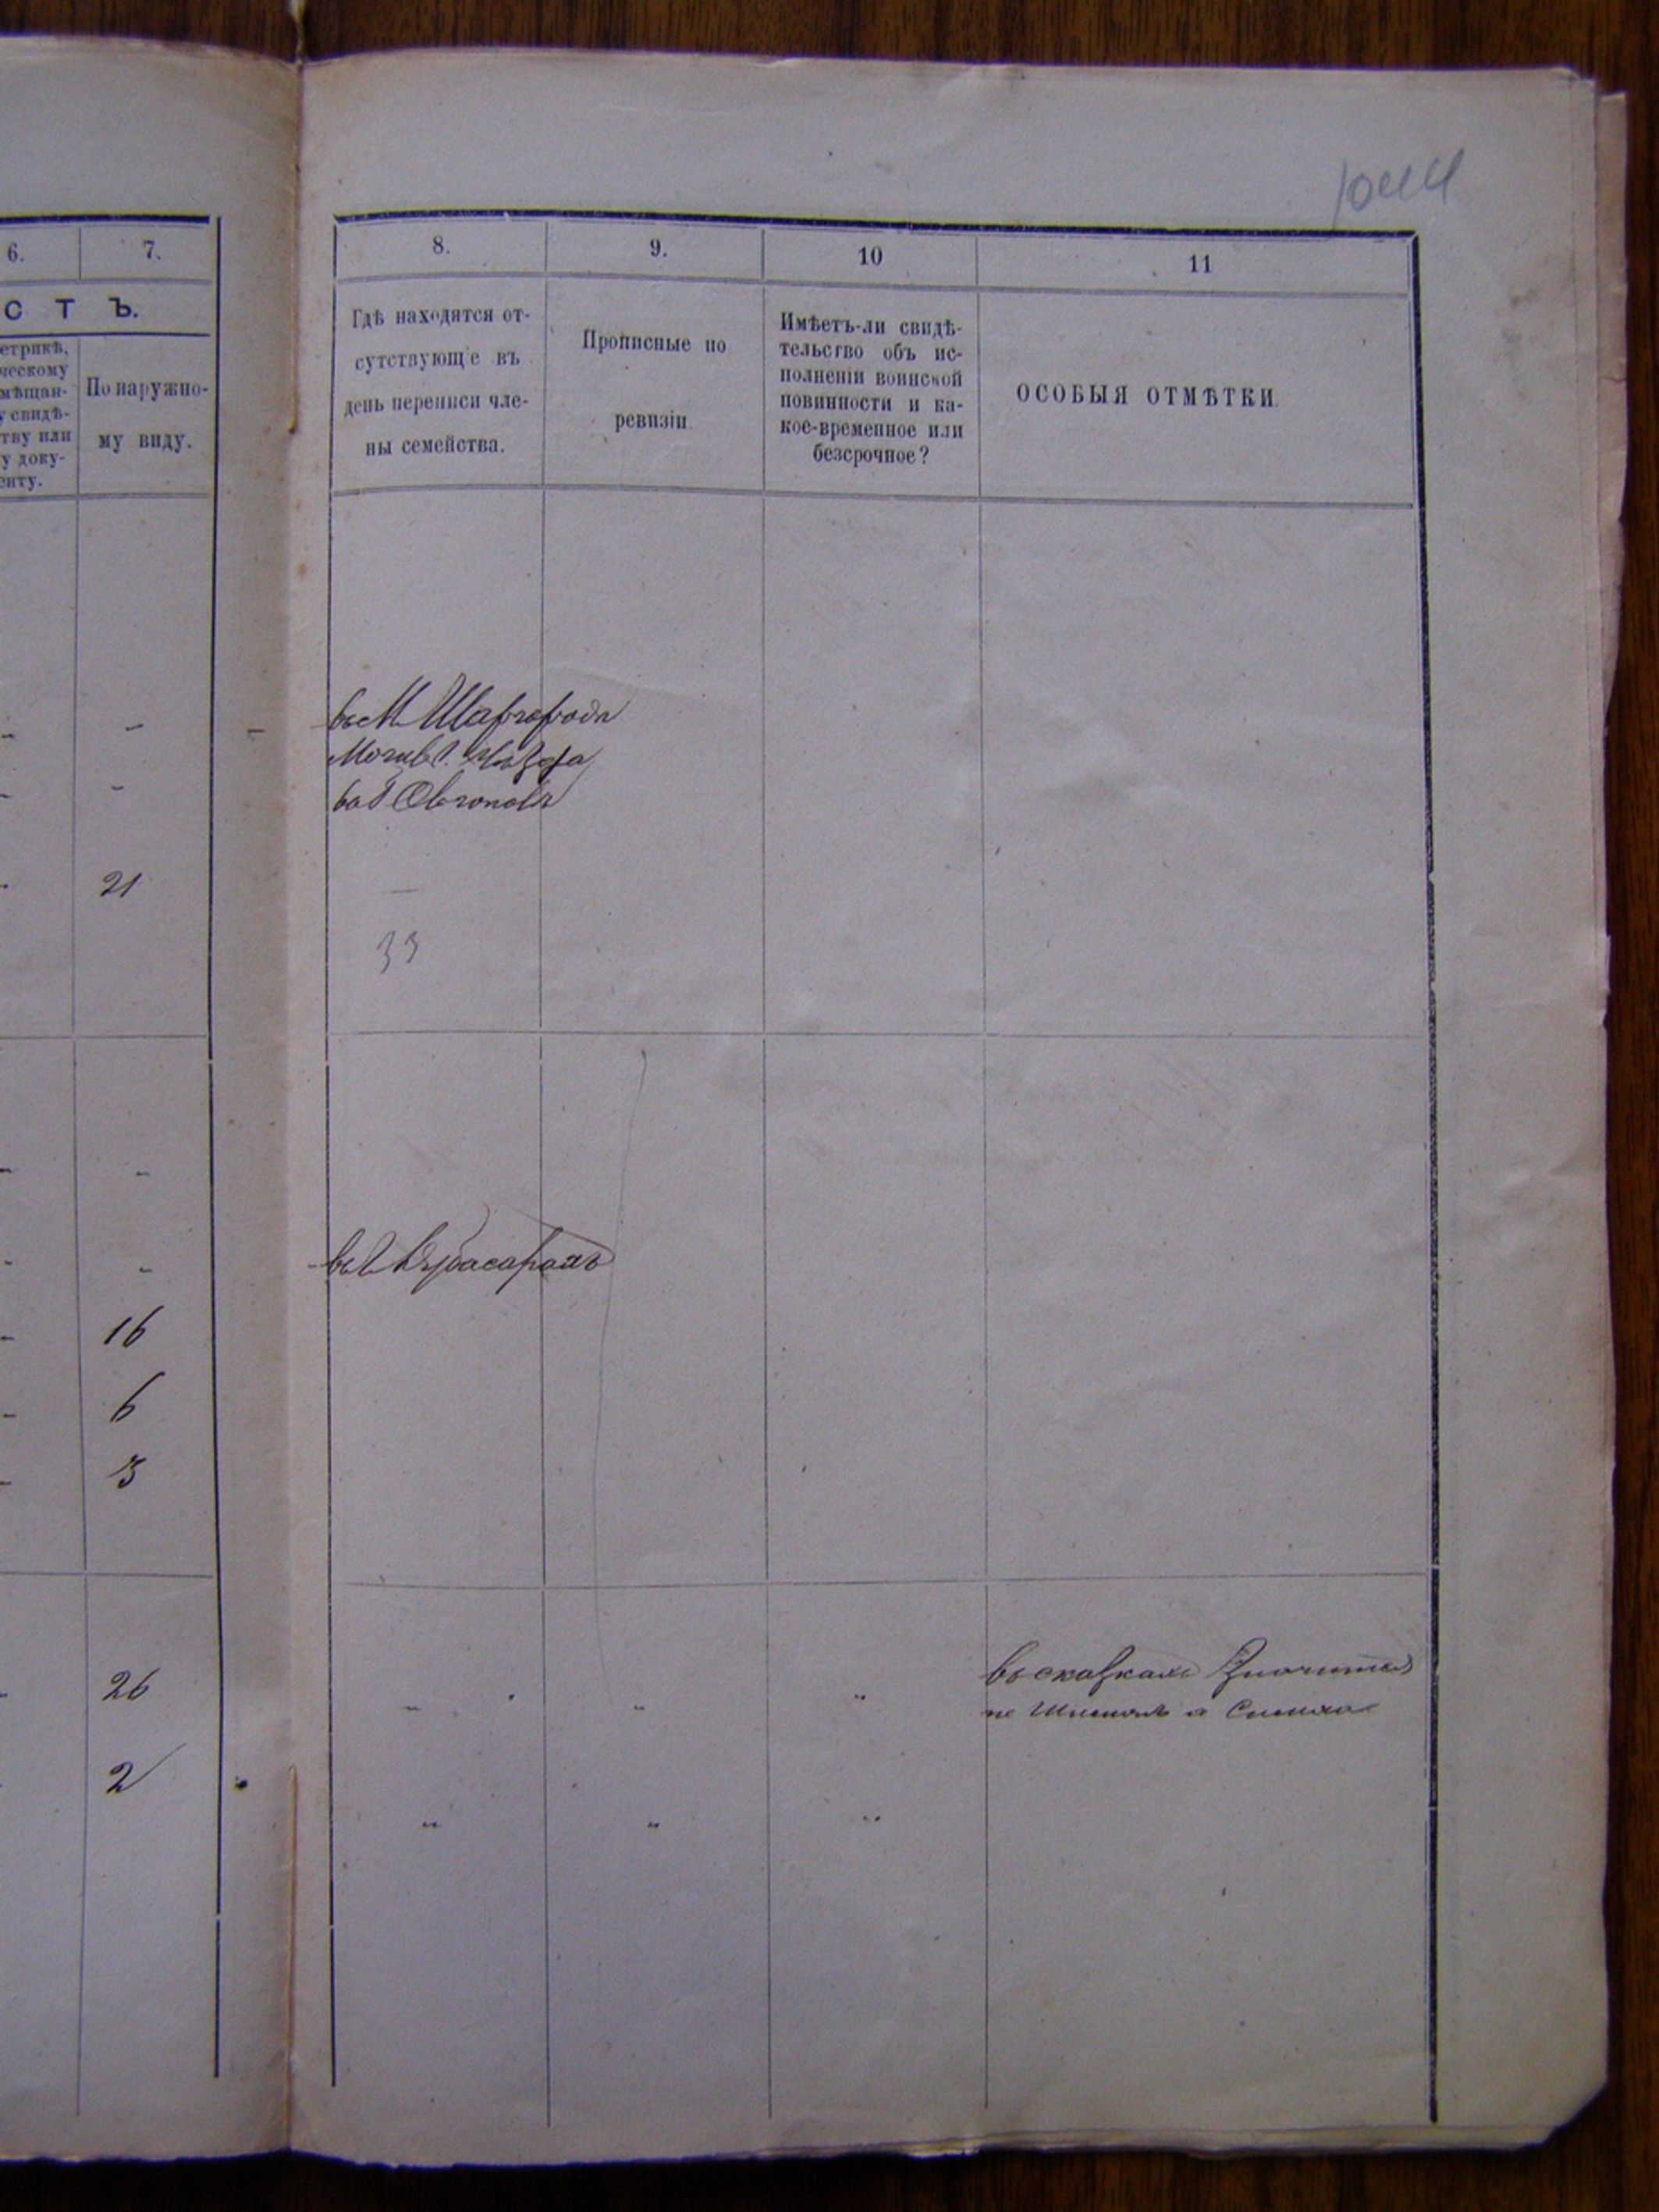 1044
6.
7.
С Т Ъ.
етрикѣ,
ческому
мѣщан-
у свидѣ-
тву или
у доку-
енту.
По наружно-
му виду.
-
-
21
-
-
16
6
3
26
2
8.
9.
10
11
Гдѣ находятся от-
сутствующіе въ
день переписи чле-
ны семейства.
Прописные по
ревизіи.
Имѣетъ-ли свидѣ-
тельство объ ис-
полненіи воинской
повинности и ка-
кое-временное или
безсрочное?
ОСОБЫЯ ОТМѢТКИ.
въ М Шаргородѣ
Могил. уѣзда
33
въ сказкахъ Значится
не Шимон а Симха